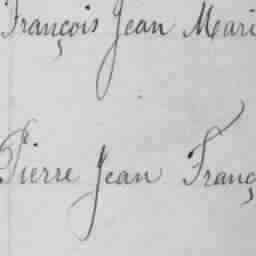 François Jean Mari
Pierre Jean Franç